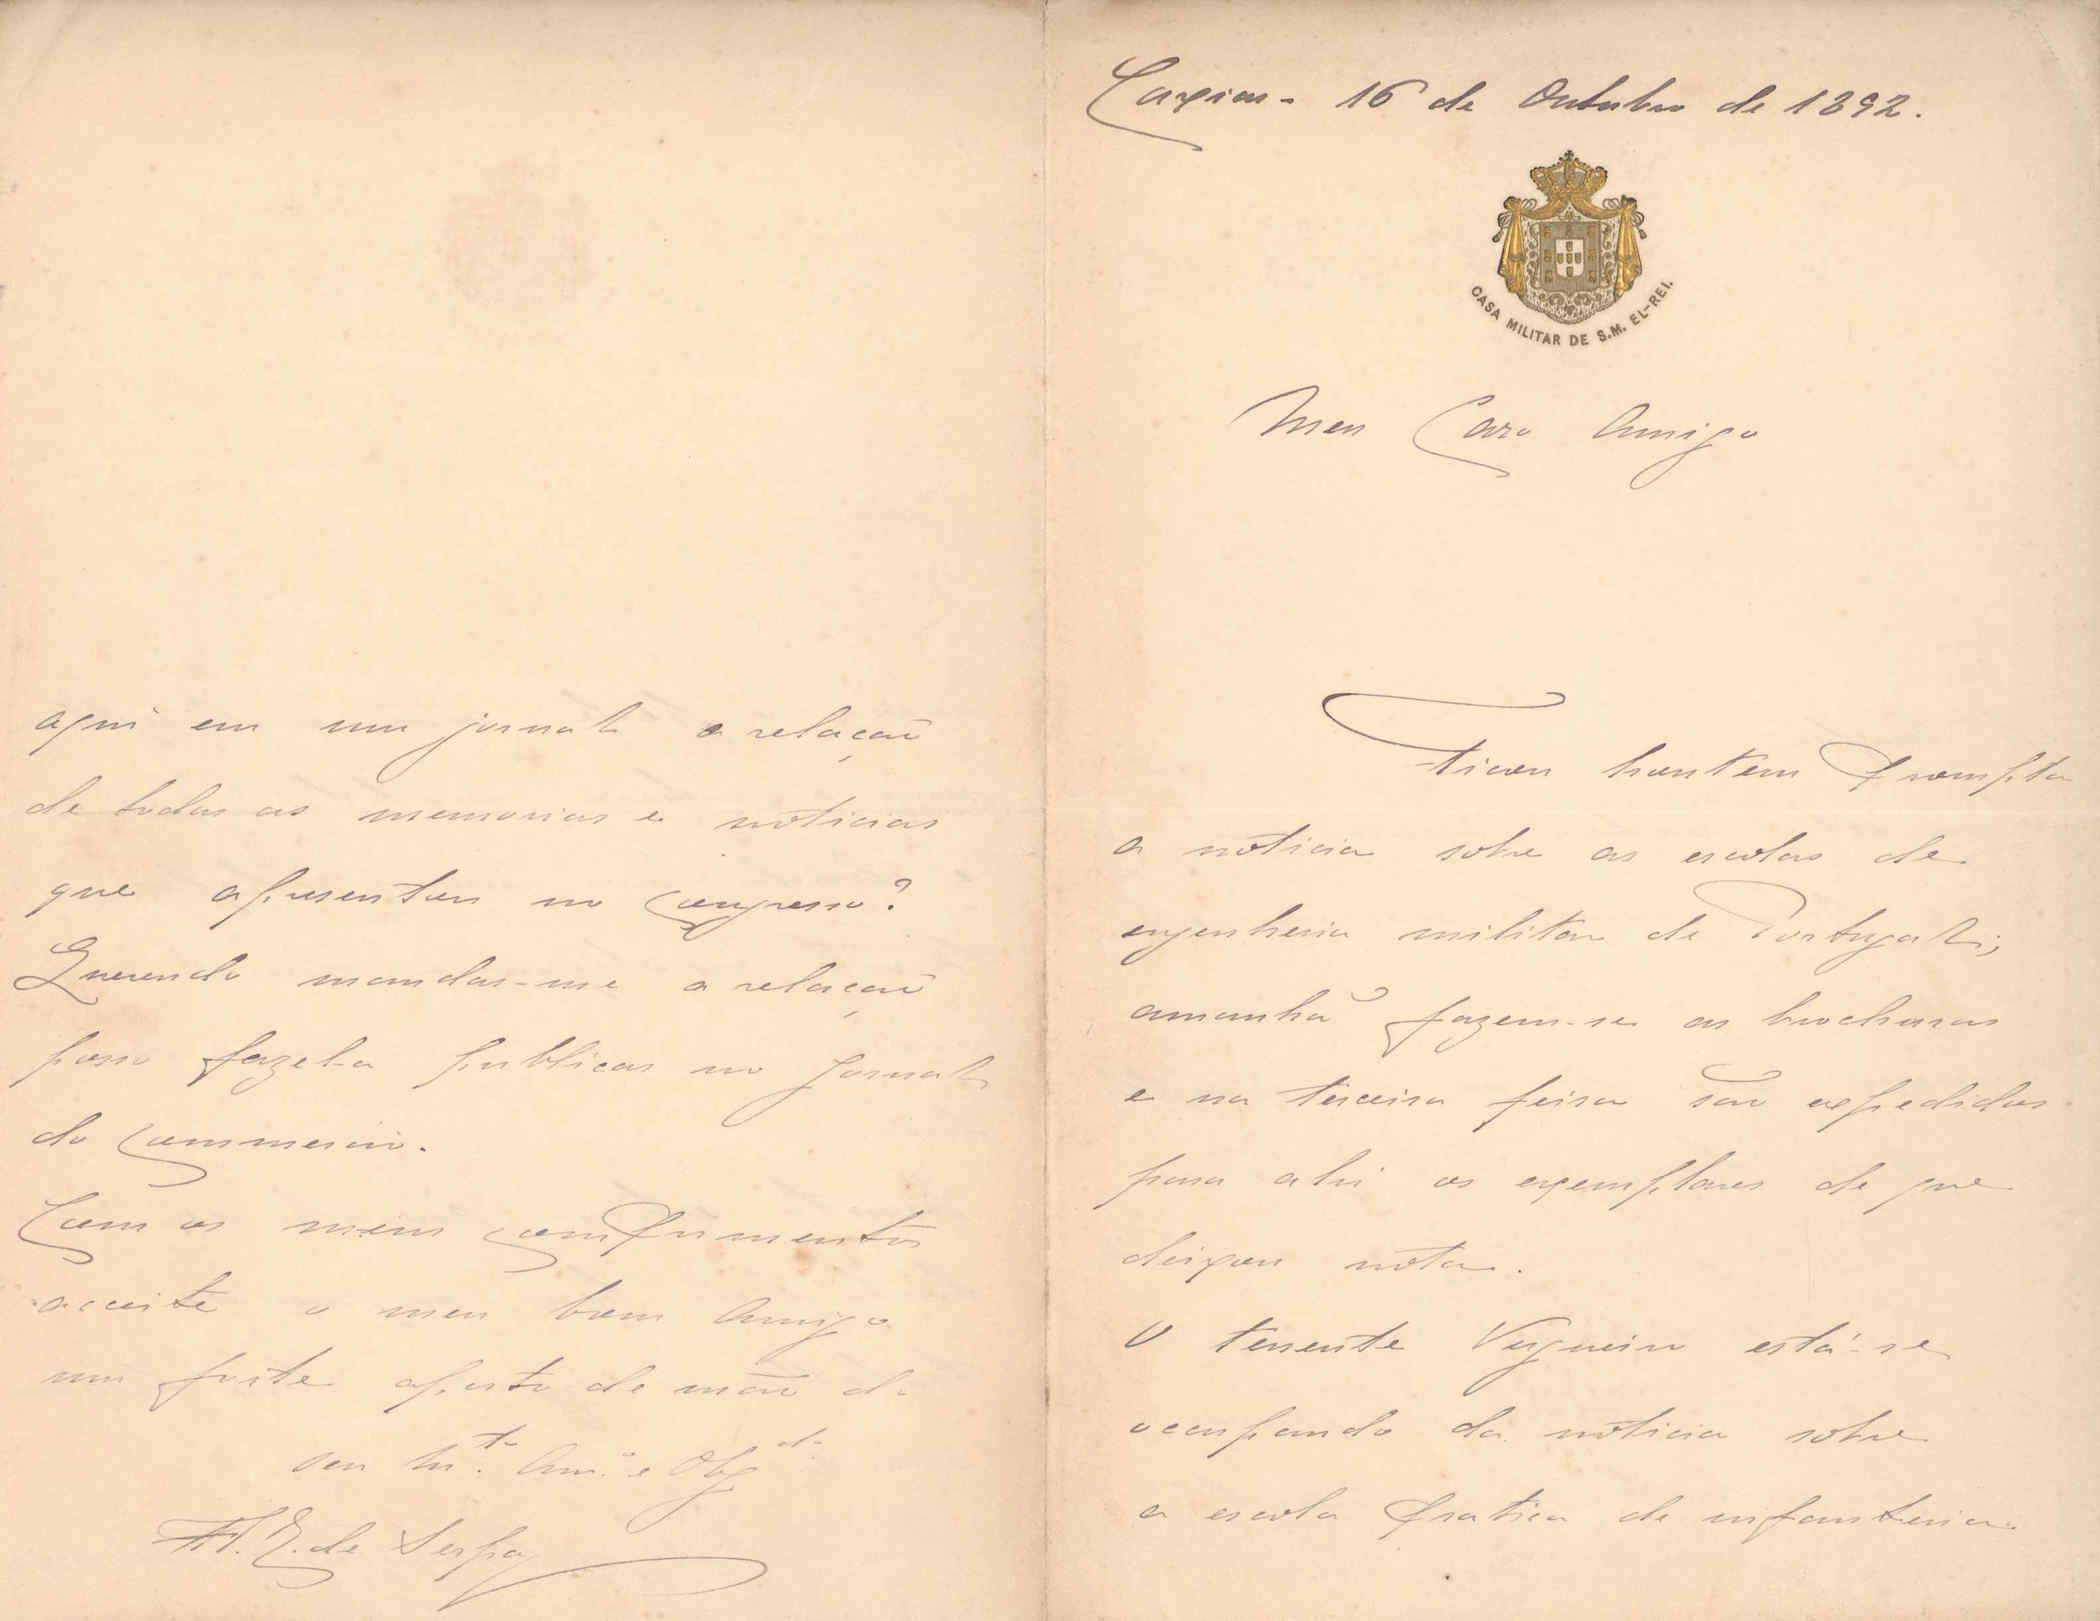 Caxias - 16 de Outubro de 1892.
CASA MILITAR DE S.M. EL-REI.
Meu Caro Amigo
Ficou hontem prompta
a noticia sobre as escolas de
engenheria militar de Portugal;
amanhã fazem-se as brochuras
e na terceira feira são expedidos
para ahi os exemplares de que
deixou nota.
O tenente Vergueiro está-se
occupando da noticia sobre
a escola pratica de infanteria
aqui em um jornal a relação
de todas as memorias e noticias
que apresentou no Congresso?
Querendo mandar-me a relação
posso fazel-a publicar no Jornal
do Commercio.
Com os meus comprimentos
acceite o meu bom Amigo
um forte aperto de mão do
seu m.to Am.o e Obg.do
de Serpa